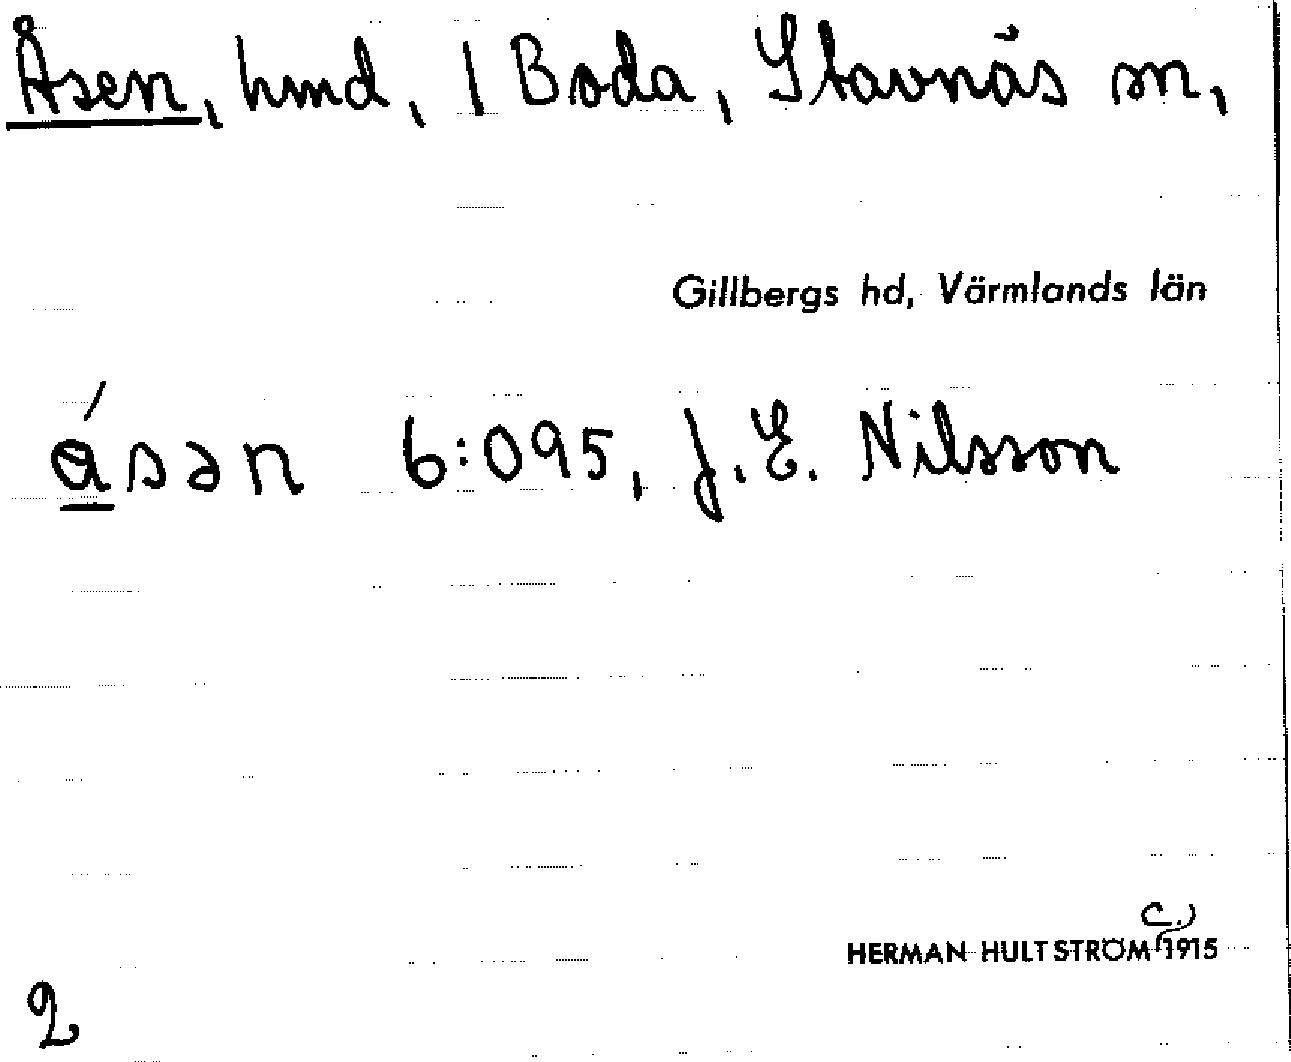 Åsen, hmd, 1 Boda, Stavnäs sn,
Gillbergs hd, Värmlands län
ásən 6:095, J.E. Nilsson
c.)
HERMAN HULTSTRÖM 1915
2